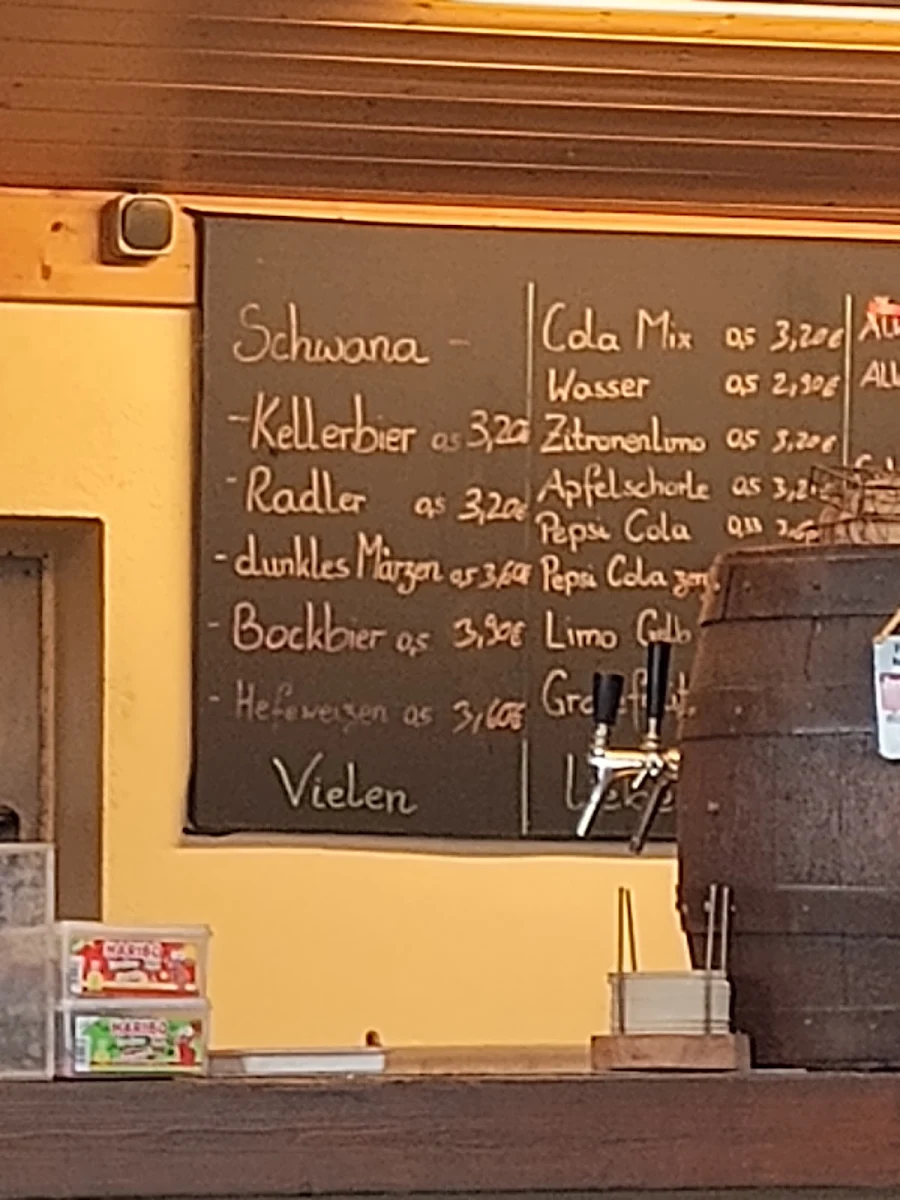 Schwana -
- Kellerbier 0,5 3,20€
- Radler 0,5 3,20€
- dunkles Märzen 0,5 3,60€
- Bockbier 0,5 3,90€
- Hefeweizen 0,5 3,60€
Vielen
Cola Mix 0,5 3,20€
Wasser 0,5 2,90€
Zitronenlimo 0,5 3,20€
Apfelschorle 0,5 3,2
Pepsi Cola 0,33
Pepsi Cola zero
Limo Gelb
Liebe
HARIBO
HARIBO